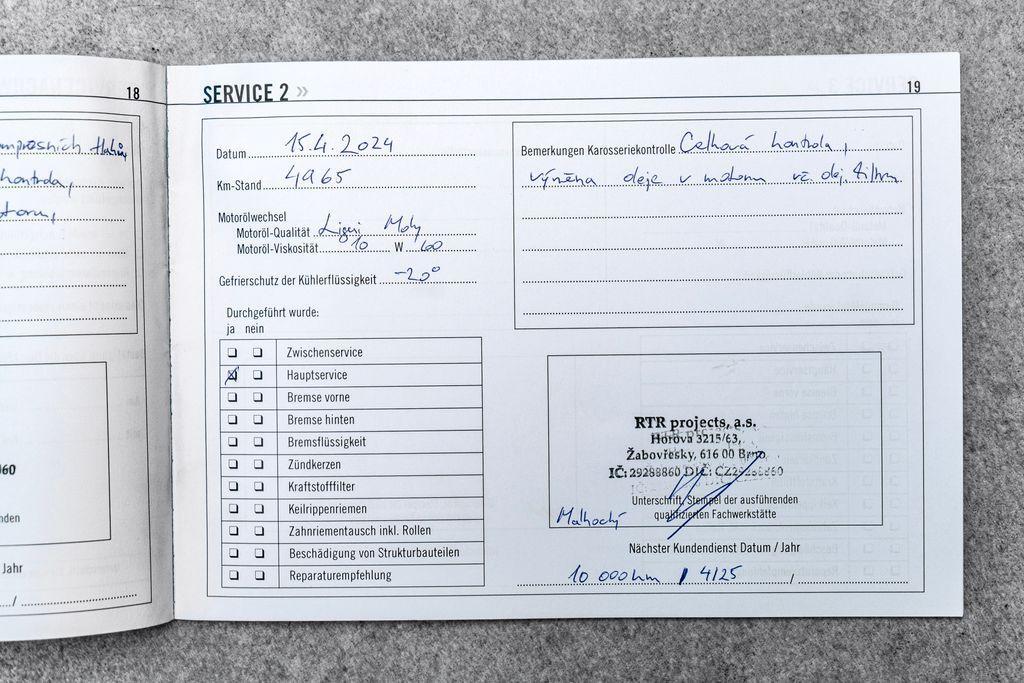 18
hontrola,
60
nden
Jahr
/
SERVICE 2 »
19
Datum 15.4.2024
Km-Stand 4965
Motorölwechsel
Motoröl-Qualität Liqui Moly
Motoröl-Viskosität 10 W 60
Gefrierschutz der Kühlerflüssigkeit -20°
Durchgeführt wurde:
ja nein
Zwischenservice
Hauptservice
Bremse vorne
Bremse hinten
Bremsflüssigkeit
Zündkerzen
Kraftstofffilter
Keilrippenriemen
Zahnriementausch inkl. Rollen
Beschädigung von Strukturbauteilen
Reparaturempfehlung
Bemerkungen Karosseriekontrolle Celková kontrola,
výměna oleje v motoru vč. olej. filtru
RTR projects, a.s.
Horova 3215/63,
Žabovřesky, 616 00 Brno
IČ: 29288860 DIČ: CZ29288860
Unterschrift, Stempel der ausführenden
qualifizierten Fachwerkstätte
Nächster Kundendienst Datum / Jahr
10 000km / 4/25 /